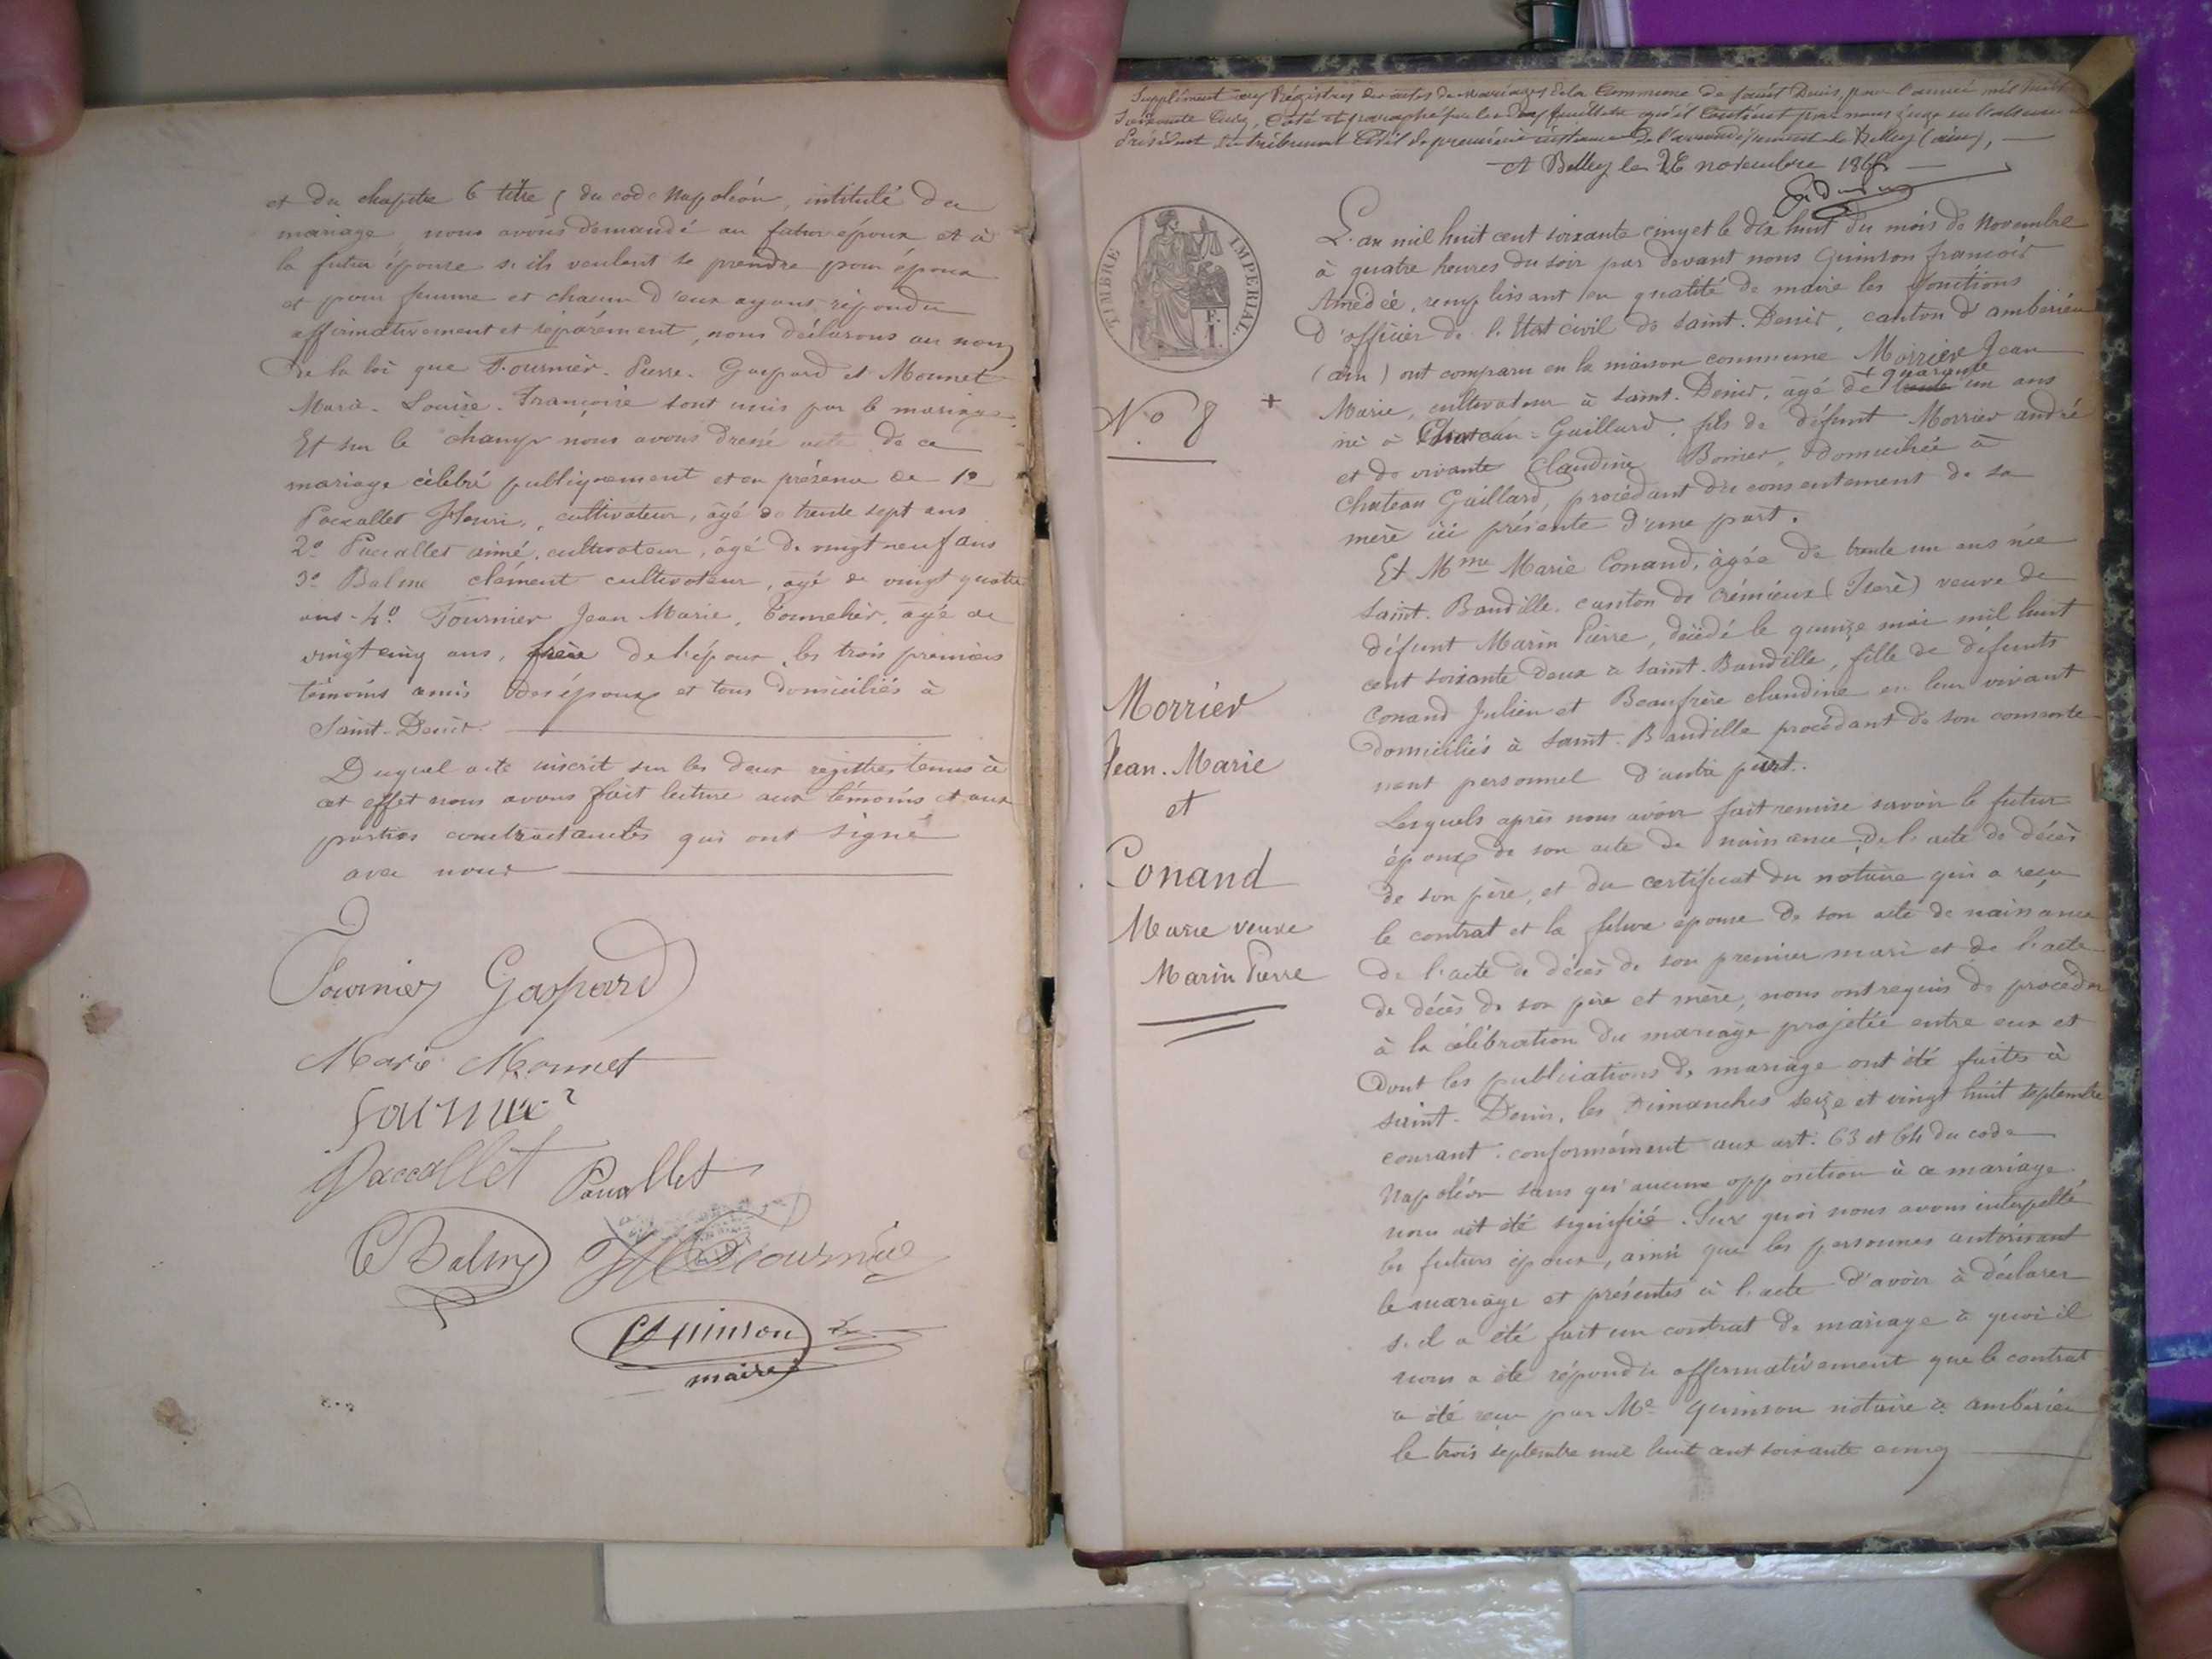 et du chapitre 6 titre 5 du code Napoléon, intitulé du
mariage nous avons demandé au futur époux et à
la futur épouse si ils veulent se prendre pour époux
et pour femme et chacun d'eux ayant répondu
affirmativement et séparément, nous déclarons au nom
de la loi que Fournier. Pierre. Gaspard et Monnet
Marie. Louise. Françoise sont unis par le mariage.
Et sur le champ nous avons dressé acte de ce
mariage célébré publiquement et en présence de 1º
Paccallet Henri, cultivateur, âgé de trente sept ans
2º Paccallet aimé, cultivateur, âgé de vingt neuf ans
3º Balme clément cultivateur, âgé de vingt quatre
ans - 4º Fournier Jean Marie, Tonnelier, âgé de
vingt cinq ans, frère de l'époux, les trois premiers
témoins amis des époux et tous domiciliés à
Saint-Denis.
Duquel acte inscrit sur les deux registres tenus à
cet effet nous avons fait lecture aux témoins et aux
parties contractantes qui ont signé
avec nous
Fournier Gaspard
Marie Monnet
Paccallet Paccallet
C Balme Fournier
Quinson
maire
Supplément aux Régistres des actes de Mariages de la Commune de Saint Denis, pour l'année mil huit
Soixante Cinq, Coté et paraphé
Président du tribunal Civil de première instance de l'arrondissement de Belley (ain),
A Belley le 26 novembre 1865
TIMBRE IMPERIAL.
L'an mil huit cent soixante cinq et le dix huit du mois de Novembre
à quatre heures du soir par devant nous Quinson françois
Amedée, remplissant en qualité de maire les fonctions
d'officier de l'Etat civil de Saint-Denis, canton d'ambérieu
(ain) ont comparu en la maison commune Morrier Jean
+ quarante
Nº 8
+
Marie, cultivateur à Saint-Denis, âgé de trente un ans
né à Chateau-Gaillard, fils de défunt Morrier andré
et de vivante Claudine domiciliée à
Chateau Gaillard, procédant du consentement de sa
mère ici présente d'une part.
Et Mme Marie Conand, âgée de trente un ans née
Saint-Baudille, canton de Crémieux (Iserè) veuve de
défunt Marin Pierre, décédé le quinze mai mil huit
cent soixante deux à Saint-Baudille, fille de défunts
Conand Julien et Beaufrère claudine en leur vivant
domiciliés à Saint-Baudille procédant de son consente-
ment personnel d'autre part.
Morrier
Jean-Marie
et
Conand
Marie veuve
Marin Pierre
Lesquels après nous avoir fait remise savoir le futur
époux de son acte de naissance, de l'acte de décès
de son père, et du certificat du notaire qui a reçu
le contrat et la future épouse de son acte de naissance
de l'acte de décès de son premier mari et de l'acte
de décès de son père et mère, nous ont requis de procéder
à la célébration du mariage projetée entre eux et
dont les publications de mariage ont été faites à
Saint-Denis, les Dimanches seize et vingt huit septembre
courant conformément aux art. 63 et 64 du code
Napoléon sans qu'aucune opposition à ce mariage
nous ait été signifiée. Sur quoi nous avons interpellé
les futurs époux, ainsi que les personnes autorisant
le mariage et présentes à l'acte d'avoir à déclarer
s'il a été fait un contrat de mariage à quoi il
nous a été répondu affirmativement que le contrat
a été reçu par Me Quinson notaire à ambérieu
le trois septembre mil huit cent soixante cinq